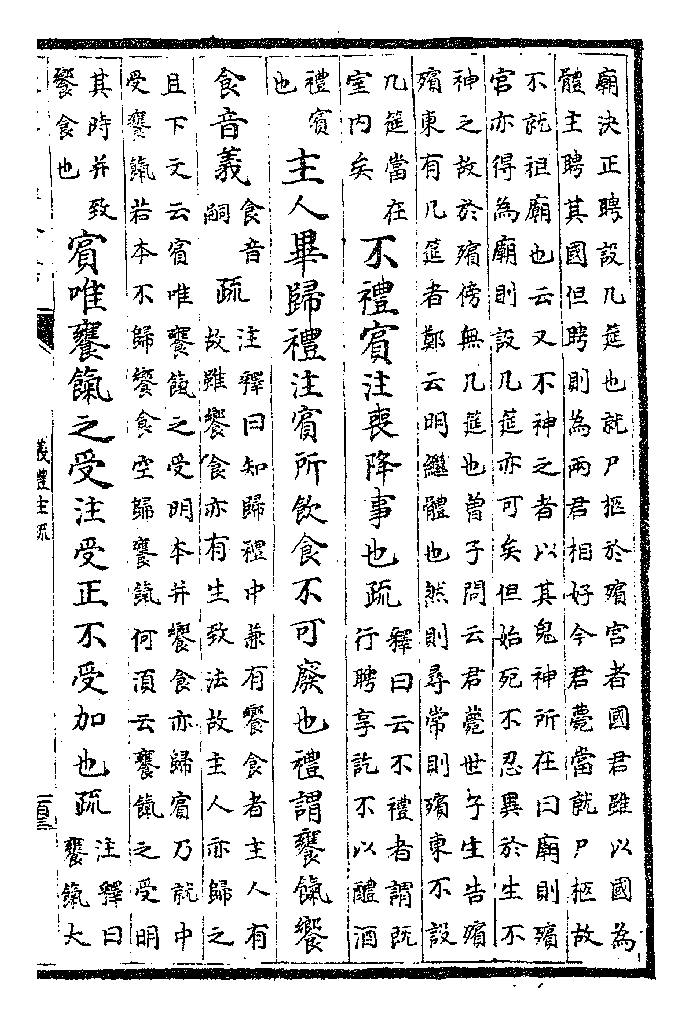 廟決正聘設几筵也就尸柩於殯宮者國君雖以國為
體主聘其國但聘則為兩君相好今君薨當就尸柩故
不就祖廟也云又不神之者以其鬼神所在曰廟則殯
宮亦得為廟則設几筵亦可矣但始死不忍異於生不
神之故於殯傍無几筵也曾子問云君薨世子生告殯
殯東有几筵者鄭云明繼體也然則尋常則殯東不設
几筵當在
室内矣
不禮賓注喪降事也疏
釋曰云不禮者謂既
行聘享訖不以醴酒
禮賓
也
主人畢歸禮注賓所飲食不可廢也禮謂饔餼饗
食音義
食音
嗣
疏
注釋曰知歸禮中兼有饗食者主人有
故雖饗食亦有生致法故主人亦歸之
且下文云賓唯饔餼之受明本并饗食亦歸賓乃就中
受饔餼若本不歸饗食空歸饔餼何湏云饔餼之受明
其時并致
饗食也
賓唯饔餼之受注受正不受加也疏
注釋曰
饔餼大
儀禮注疏